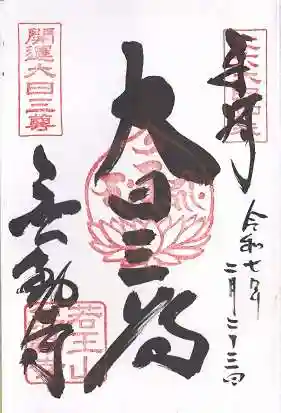 奉拝
令和七年
二月二十三日
大日三尊
無動寺
開運大日三尊
若王山